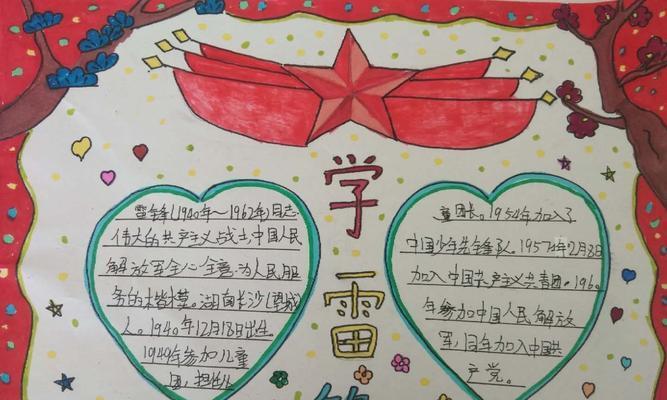 学
雷
雷锋(1940年~1962年)同志.
伟大的共产主义战士,中国人民
解放军全心全意为人民服
务的楷模。湖南长沙(望城
人。1940年12月18日出生
1949年参加儿童
团,担任儿
童团长。1954年加入了
中国少年先锋队。1957年2月8日
加入中国共产主义共青团。1960
年参加中国人民解放
军,同年加入中国共
产党。